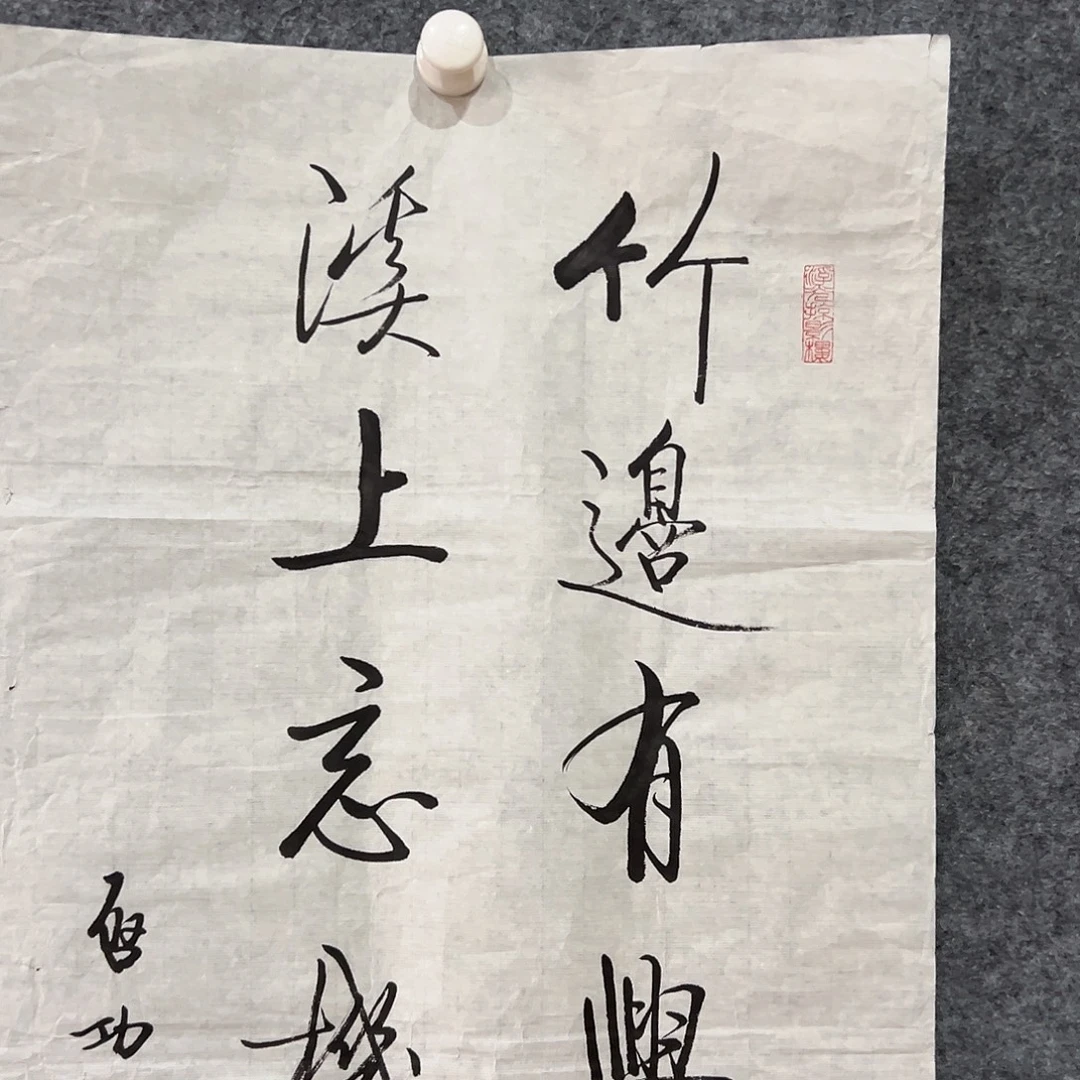 竹邊有興
溪上忘機
啟功